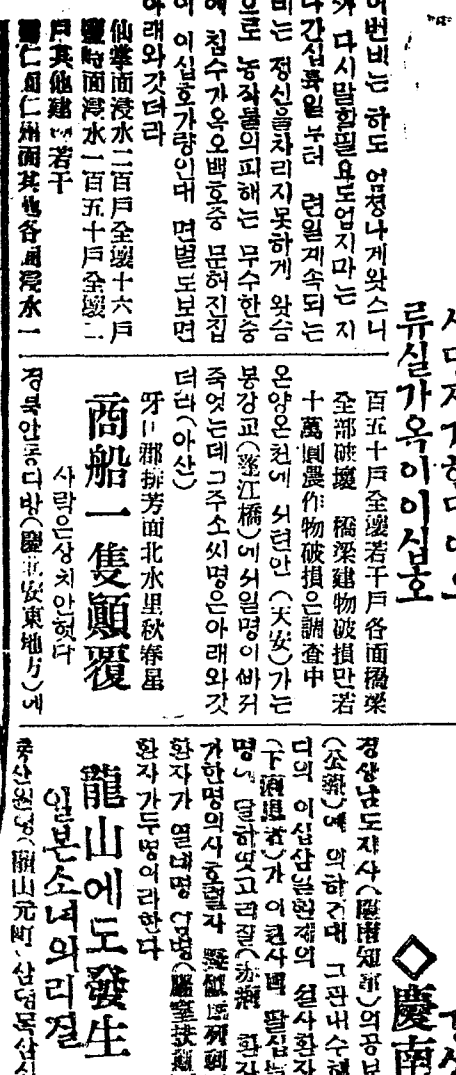 이번비는 하도 엄청나게왓스니
다시말할필요도업지마는 지
나간십륙일부터 련일계속되는
비는 정신을차리지못하게 왓슴
으로 농작물의피해는 무수한중
침수가옥오백호중 문허진집
이 이십호가량인대 면별로보면
아래와갓더라
仙掌面浸水二百戶全壞十六戶
面浸水一百五十戶全壞二
戶其他建物若干
仁州面其他各面浸水一
류실가옥이이십호
百五十戶全壞若干戶各面橋梁
全部破壞 橋梁建物破損만若
十萬圓農作物破損은調査中
온양온천에서련안(天安)가는
봉강교(蓬江橋)에서일명이바저
죽엇는데그주소씨명은아래와갓
더라(아산)
牙山郡排芳面北水里秋春星
商船一隻顚覆
사람은상치안헛다
경북안동디방(慶北安東地方)에
◇慶南
경상남도지사(慶南知事)의공보
(公報)에 의하건대 그관내수해
디의 이십삼일현재의 설사환자
(下痢患者)가 이천사백 팔십
명에 달하엿고리질(赤痢) 환자
가한명의사호렬자
환자가 열네명
환자가두명이라한다
龍山에도發生
일본소녀의리질
룡산원뎡(龍山元町)삼뎡목삼십